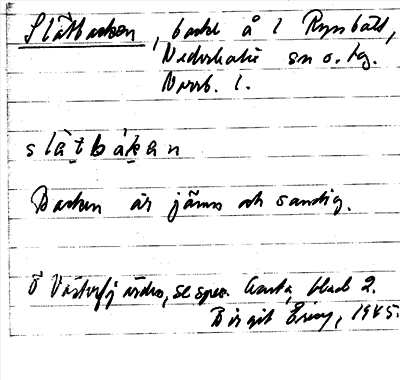 Slätbacken, backe å l Rynbäck,
Nederkalix sn o. hg.
Norrb. l.
slätbakan
Backen är jämn och sandig.
Ö Västerfjärden, se spec. karta, blad 2.
Birgit Ericz, 1945.